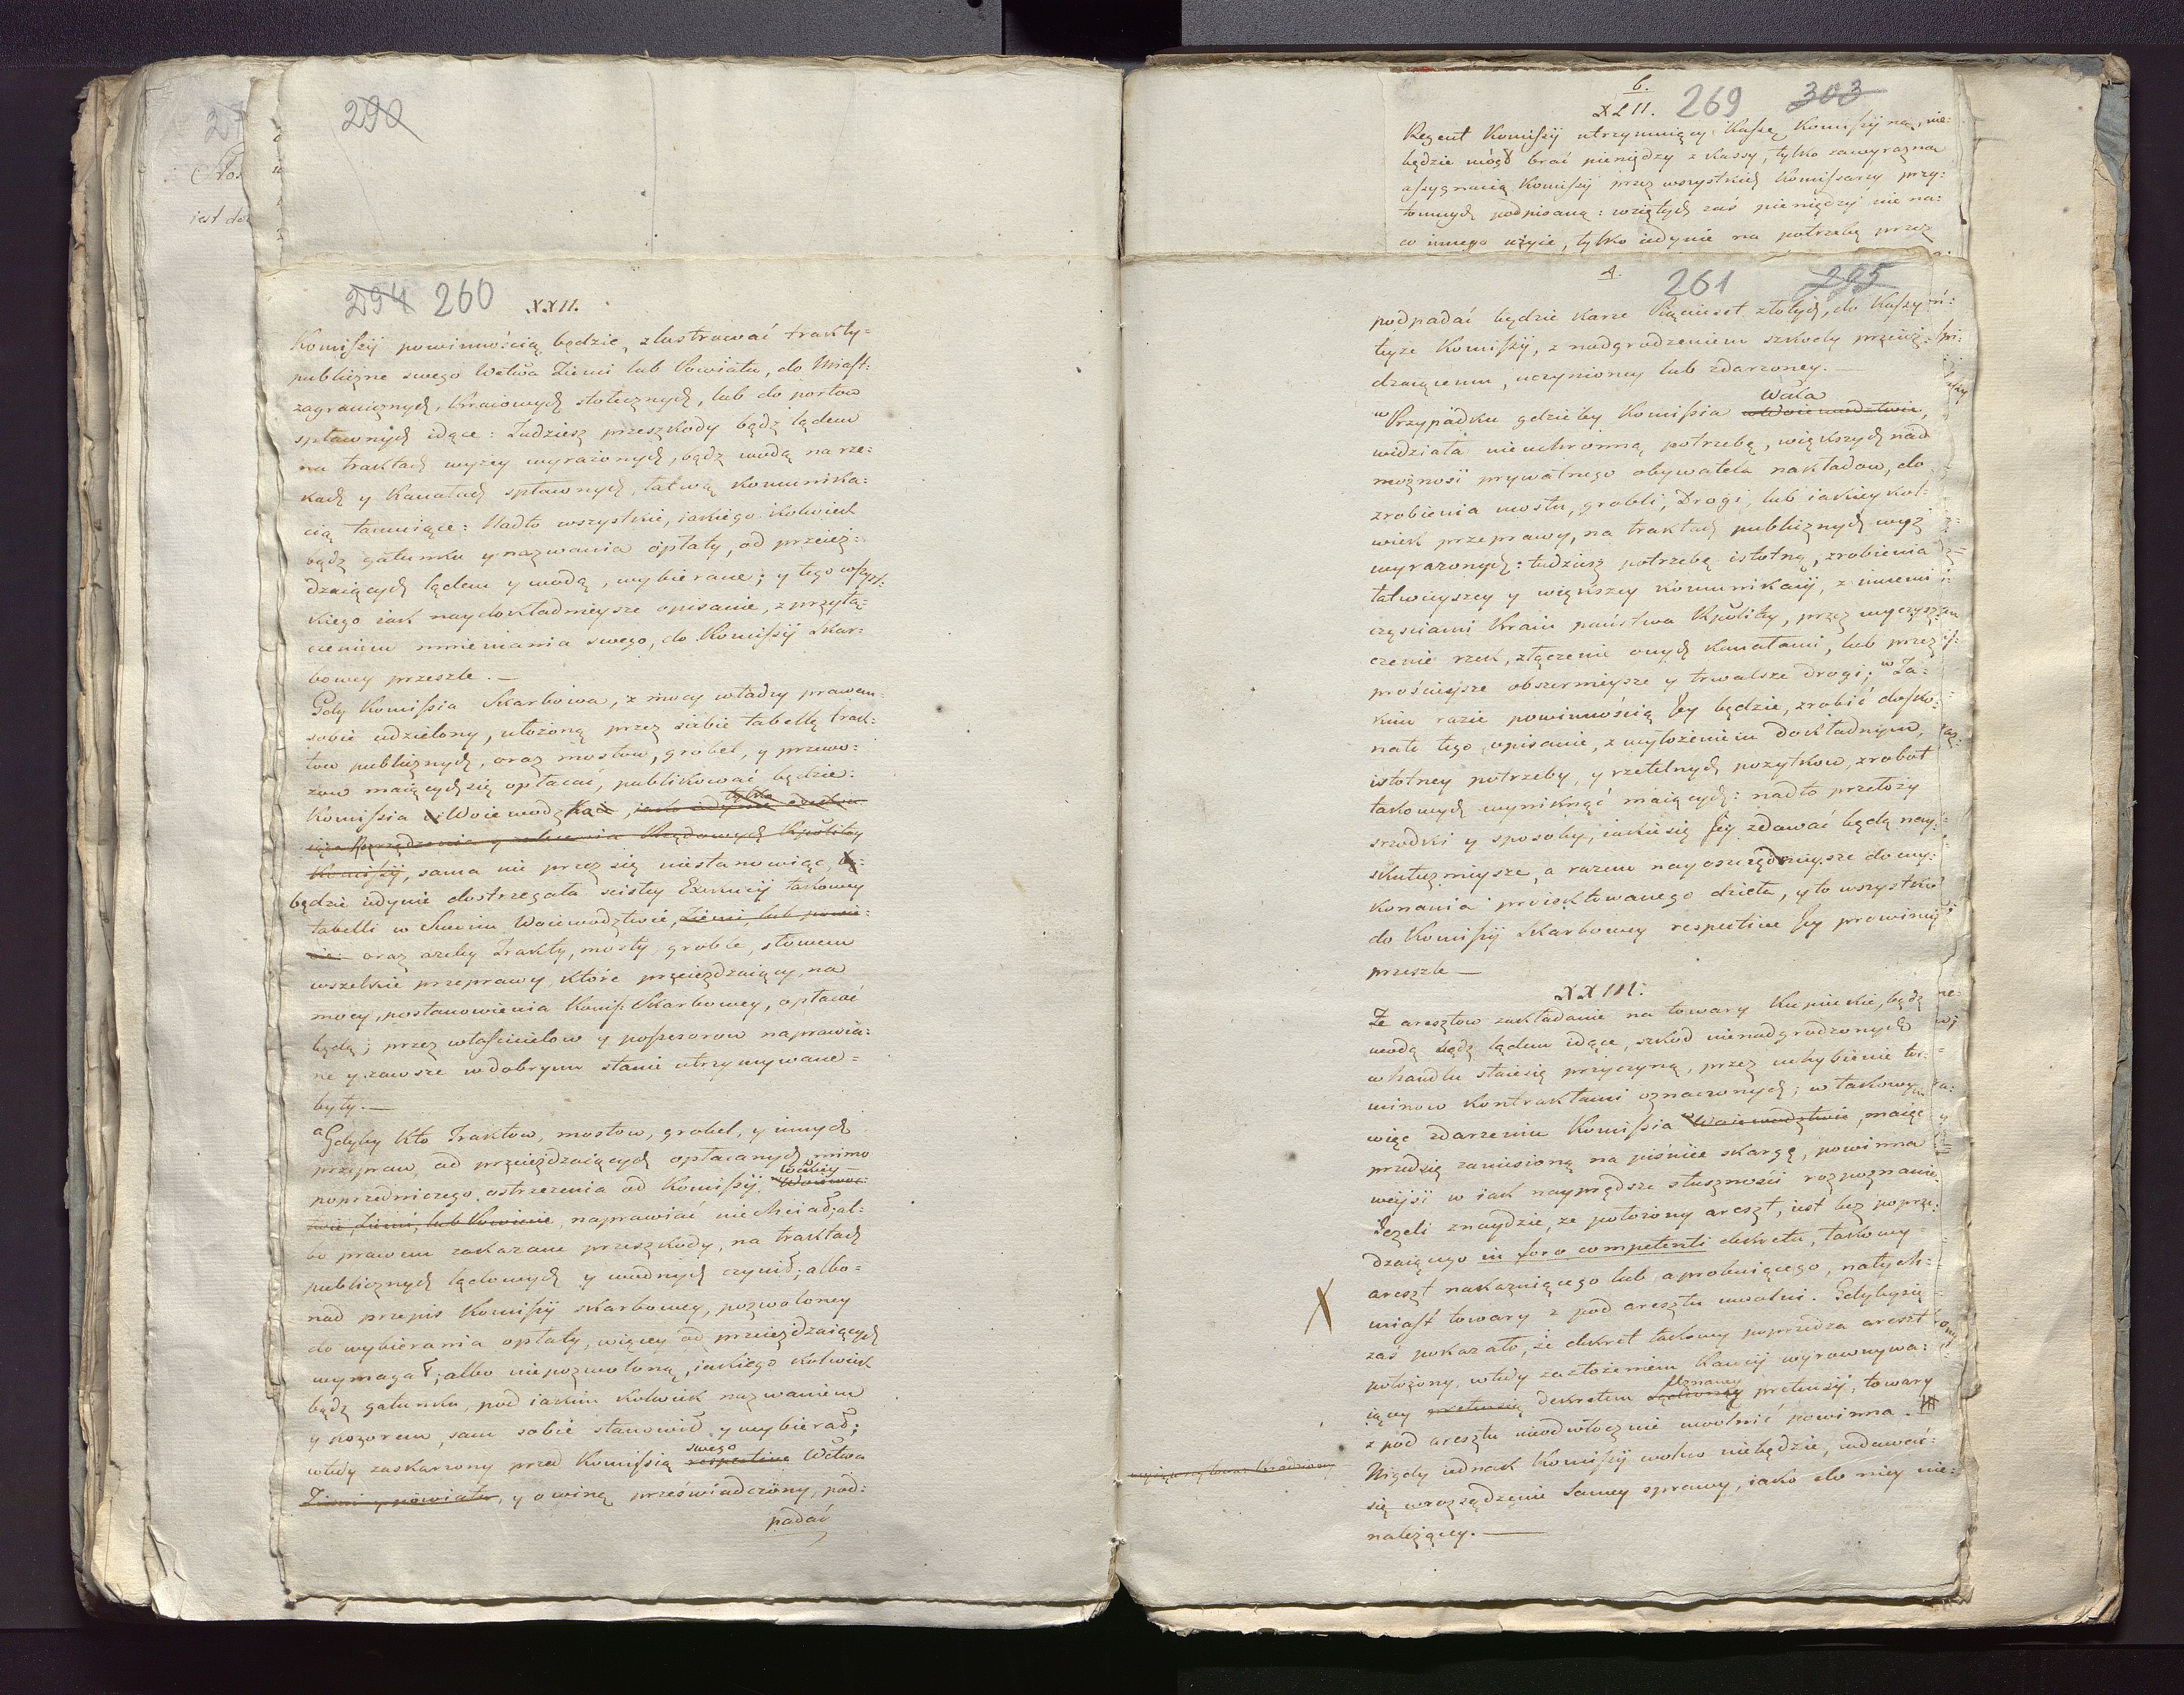 290
294 260 XXII.
Komissyi powinnością będzie, zlustrować trakty-
publiczne swego Wctwa Ziemi lub Powiatu, do Miast:
zagranicznych, Kraiowych stołecznych, lub do portow
spławnych idące: Tudziesz przeszkody bądź lądem
na traktach wyżey wyrażonych, bądź wodą na rze:
kach y Kanałach spławnych, łatwą komunika:
cią tamuiące: Nadto wszystkie, iakiego kolwiek
bądź gatunku y nazwania opłaty, od przeież:
dzaiących lądem y wodą, wybierane; y tego wszyst:
kiego iak naydokładnieysze opisanie, z przyłą:
czeniem mniemania swego, do Komissyi Skar:
bowey przeszle. —
Gdy Komissia Skarbowa, z mocy władzy prawem
sobie udzieloney, ułożoną przez siebie tabellę trak:
tow publicznych, oraz mostow, grobel, y przewo:
zow maiących się opłacać, publikować będzie:
tylko
Komissia Woiewodzka, iak edynie
Rozrządzenia y zalecenia Rządowych Rzplitey
Komissyi, sama nic przez się niestanowiąc,
będzie iedynie dostrzegała scisłey Exekucyi takowey
tabelli w Swoim Woiewodztwie, Ziemi, lub powie:
cie oraz ażeby Trakty, mosty, groble, słowem
wszelkie przeprawy, które przeieżdzaiący, na
mocy, postanowienia Komiss: Skarbowey, opłacać
będą; przez właścicielow y possesorow naprawia:
ne y zawsze w dobrym stanie utrzymywane=
były. —
a Gdyby Kto Traktow, mostow, grobel, y innych
przepraw, od przeieżdzaiących opłacanych, mimo
Wckiey
poprzedniczego ostrzeżenia od Komissyi w Woiewodz:
twie, Ziemi, lub Powiecie, naprawiać niechciał; al:
bo prawem zakazane przeszkody, na traktach
publicznych lądowych y wodnych czynił; albo=
nad przepis Komissyi skarbowey, pozwoloney
do wybierania opłaty, więcey od przeieżdzaiących
wymagał; albo niepozwoloną, iakiego kolwiek
bądź gatunku, pod iakim kolwiek nazwaniem
y pozorem, sam sobie stanowił y wybierał;
swego
wtedy zaskarzony przed Komissią respective Wctwa
Ziemi y powiatu, y o winę przeświadczony, pod:
padać
6.
XLII. 269 303
Regent Komissyi utrzymuiący Kassę Komissyiną, nie:
będzie mógł brać pieniędzy z kassy, tylko za wyrazną
assygnacią Komissyi przez wszystkich Komissarzy przy:
tomnych podpisaną: wziętych zaś pieniędzy nie na:
co innego użyie, tylko iedynie na potrzebę przez
4. 261 295
podpadać będzie karze Pięciuset złotych, do Kassy
teyże Komissyi, z nadgrodzeniem szkody przeież:
dzaiącemu, uczynioney lub zdarzoney. —
Wcka
w Przypadku gdzieby Komissia w Woiewodztwie,
widziała nieuchronną potrzebę, większych nad
możność prywatnego obywatela nakładow, do
zrobienia mostu, grobli, Drogi, lub iakieykol:
wiek przeprawy, na traktach publicznych wyż
wyrażonych: tudziesz potrzebę istotną, zrobienia
łatwieyszey y większey kommunikacyi, z innemi
częściami Kraiu państwa Rzplitey, przez wyczysz:
czenie rzek, złączenie onych kanałami, lub przez
prościeysze obszernieysze y trwalsze drogi; w Ta:
kim razie powinnością Jey będzie, zrobić dosko:
nałe tego opisanie, z wyłożeniem dokładnym,
istotney potrzeby, y rzetelnych pożytkow, z robot
takowych wyniknąć maiących: nadto przełoży
srzodki y sposoby, iakie się Jey zdawać będą nay:
skutecznieysze, a razem nayoszczędnieysze do wy:
konania proiektowanego dzieła, y to wszystko
do Komissyi Skarbowey respective Jey prowincyi
przeszle —
XXIII.
Że aresztow zakładanie na towary Kupieckie, bądź
wodą bądź lądem idące, szkod nienadgrodzonych
w handlu staie się przyczyną, przez uchybienie ter:
minow Kontraktami oznaczonych; w takowym
więc zdarzeniu Komissia w Woiewodztwie, maiąc
przed się zaniesioną na piśmie skargę, powinna
weyść w iak nayprędsze słuszności rozpoznanie.
Jezeli znaydzie, że położony areszt, iest bez poprze:
dzaiącego in foro competenti dekretu, takowy-
areszt nakazuiącego lub aprobuiącego, natych:
miast towary z pod aresztu uwolni. Gdyby się
zaś pokazało, że dekret takowy poprzedza areszt
położony, wtedy za złożeniem Kaucyi wyrownywa:
uznaney
iącey pretensią dekretem pretensyi, towary
z pod aresztu nieodwłocznie uwolnić powinna.
Nigdy iednak Komissyi wolno niebędzie, wdawać
się w rozsądzenie Samey sprawy, iako do niey nie:
należącey. —